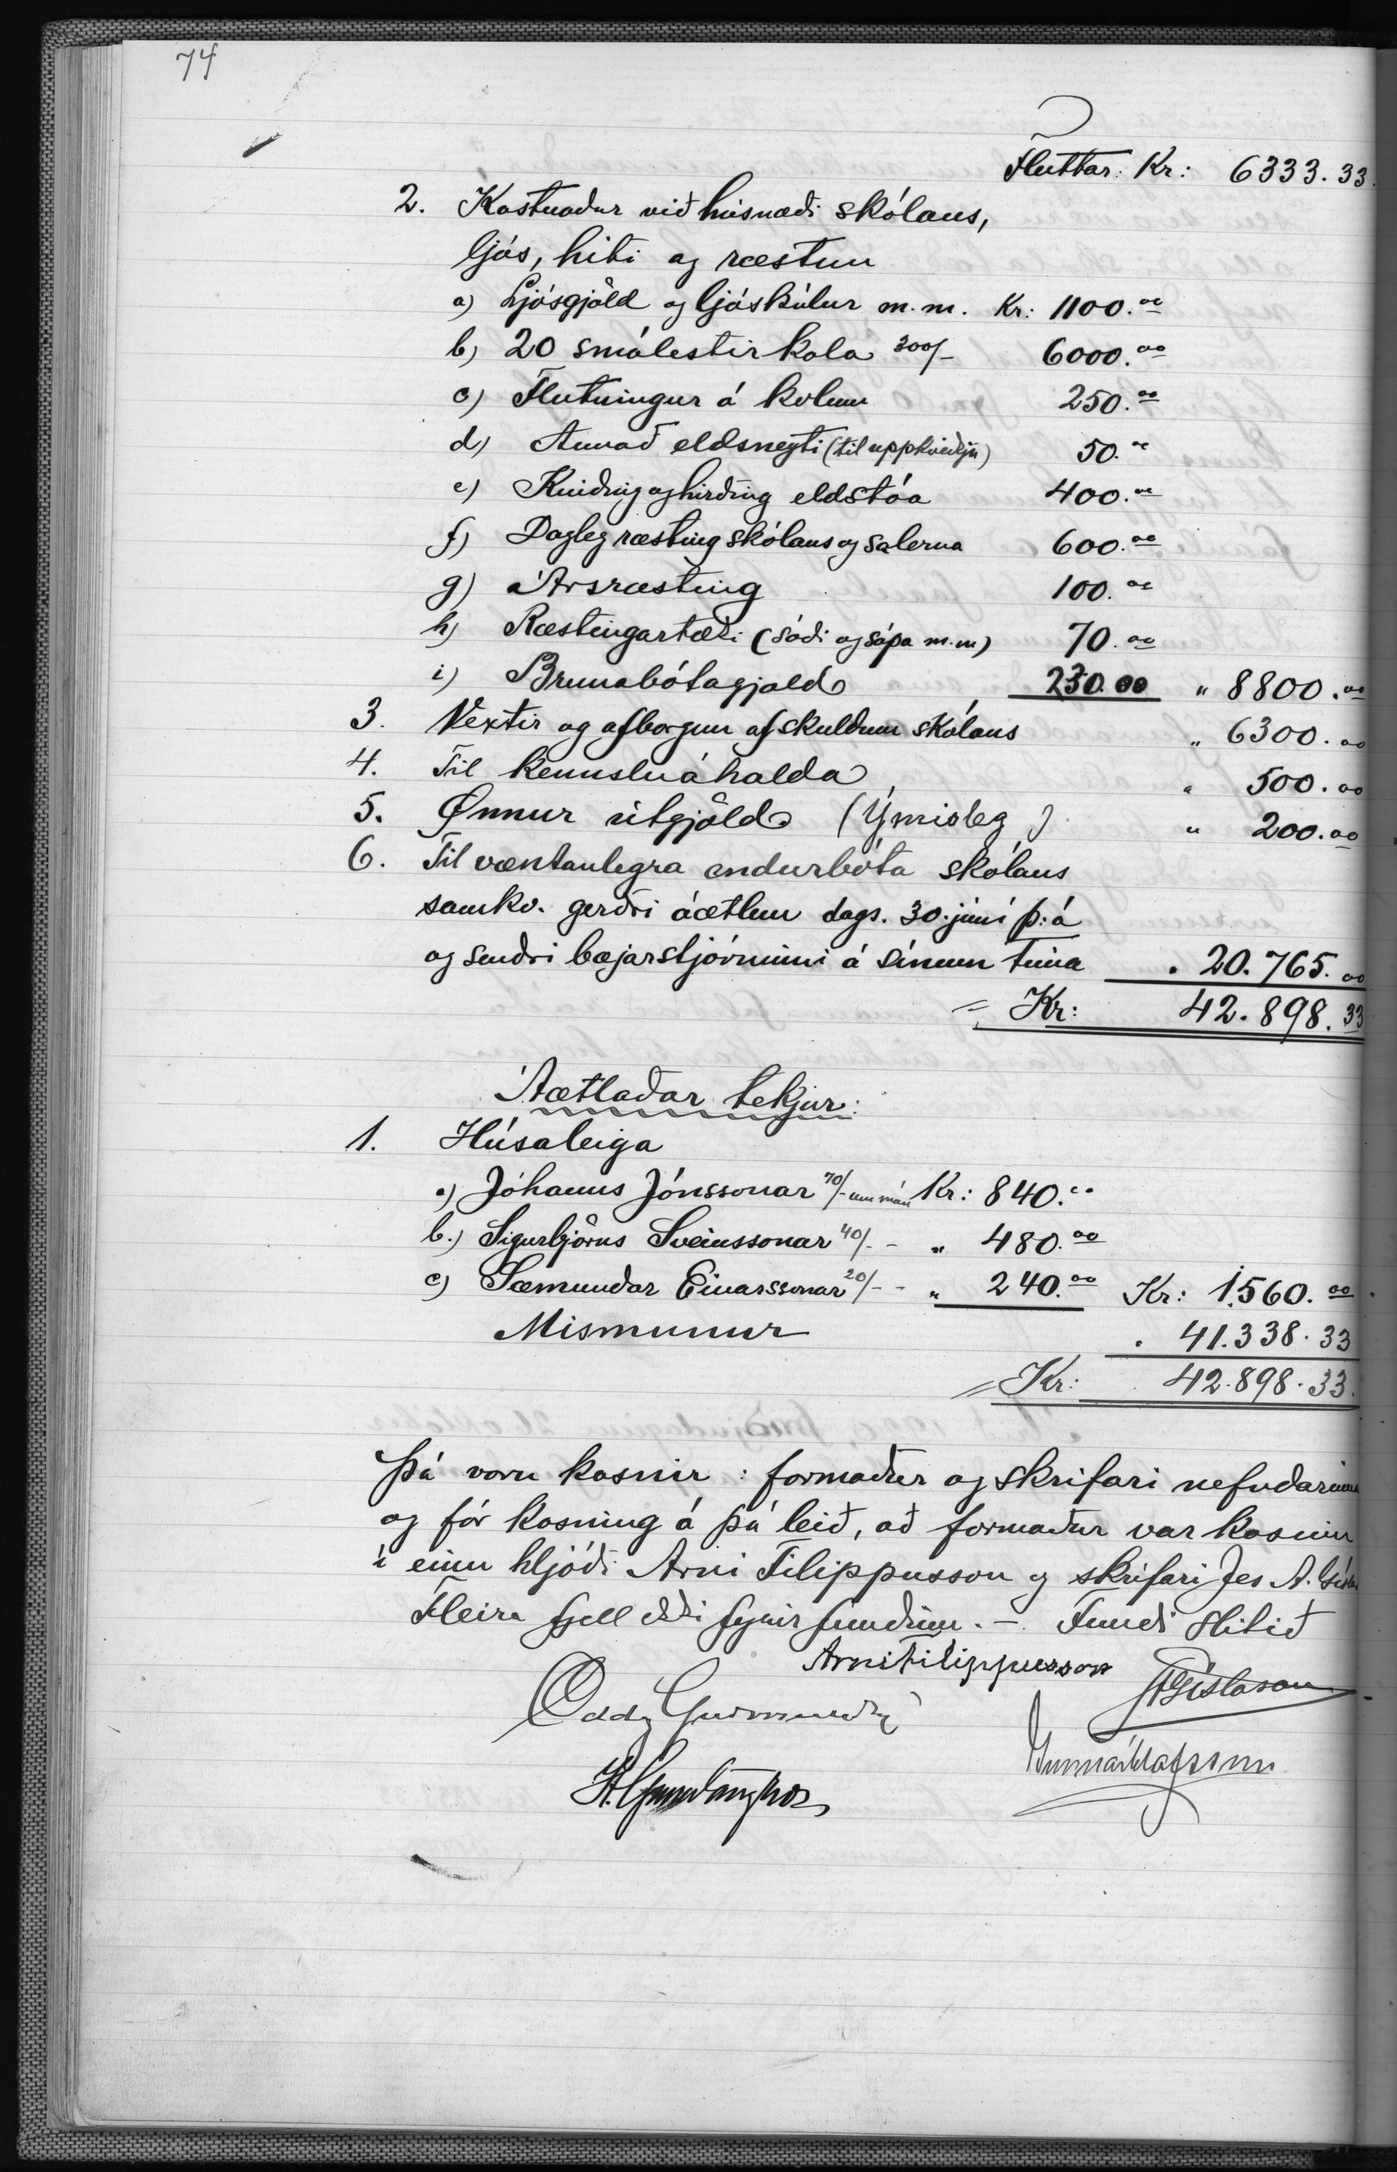 74
Fluttar Kr: 6333.33.
2. Kostnaður við húsnæði skólans,
ljós, hiti og ræstun
a) Ljósgjöld og ljóskúlur m.m. Kr: 1100.00
b) 20 smálestir kola 300/- 6000.00
c) Flutningur á kolum 250.00
d) Annað eldsneyti (til uppkveikju) 50.00
e) Kynding og hirðing eldstóa 400.00
f) Dagleg ræsting skólans og salerna 600.00
g) Ársræsting 100.00
h) Ræstingartæki (sódi og sápa m.m) 70.00
i) Brunabótagjald 230.00 " 8800.00
3. Vextir og afborgun af skuldum skólans " 6300.00
4. Til kennsluáhalda " 500.00
5. Önnur útgjöld (Ýmisleg) " 200.00
6. Til væntanlegra endurbóta skólans
samkv. gerðri áætlun dags. 30. júní þ:á
og sendri bæjarstjórninni á sínum tíma " 20.765.00
= Kr: 42.898.33
Áætlaðar tekjur:
1. Húsaleiga
a) Jóhanns Jónssonar 70/- um mán Kr: 840.00
b.) Sigurbjörns Sveinssonar 40/- - " 480.00
c) Sæmundar Einarssonar 20/- - " 240.00 Kr: 1.560.00
Mismunur " 41.338.33
= Kr: 42.898.33.
Þá voru kosnir: formaður og skrifari nefndarinnar
og fór kosning á þá leið, að formaður var kosinn
í einu hljóði Árni Filippusson og skrifari Jes A. Gíslas
Fleira fjell ekki fyrir fundinn. - Fundi slitið
Árni Filippusson JAGíslason
Oddg Guðmunds
Gunnar Ólafsson